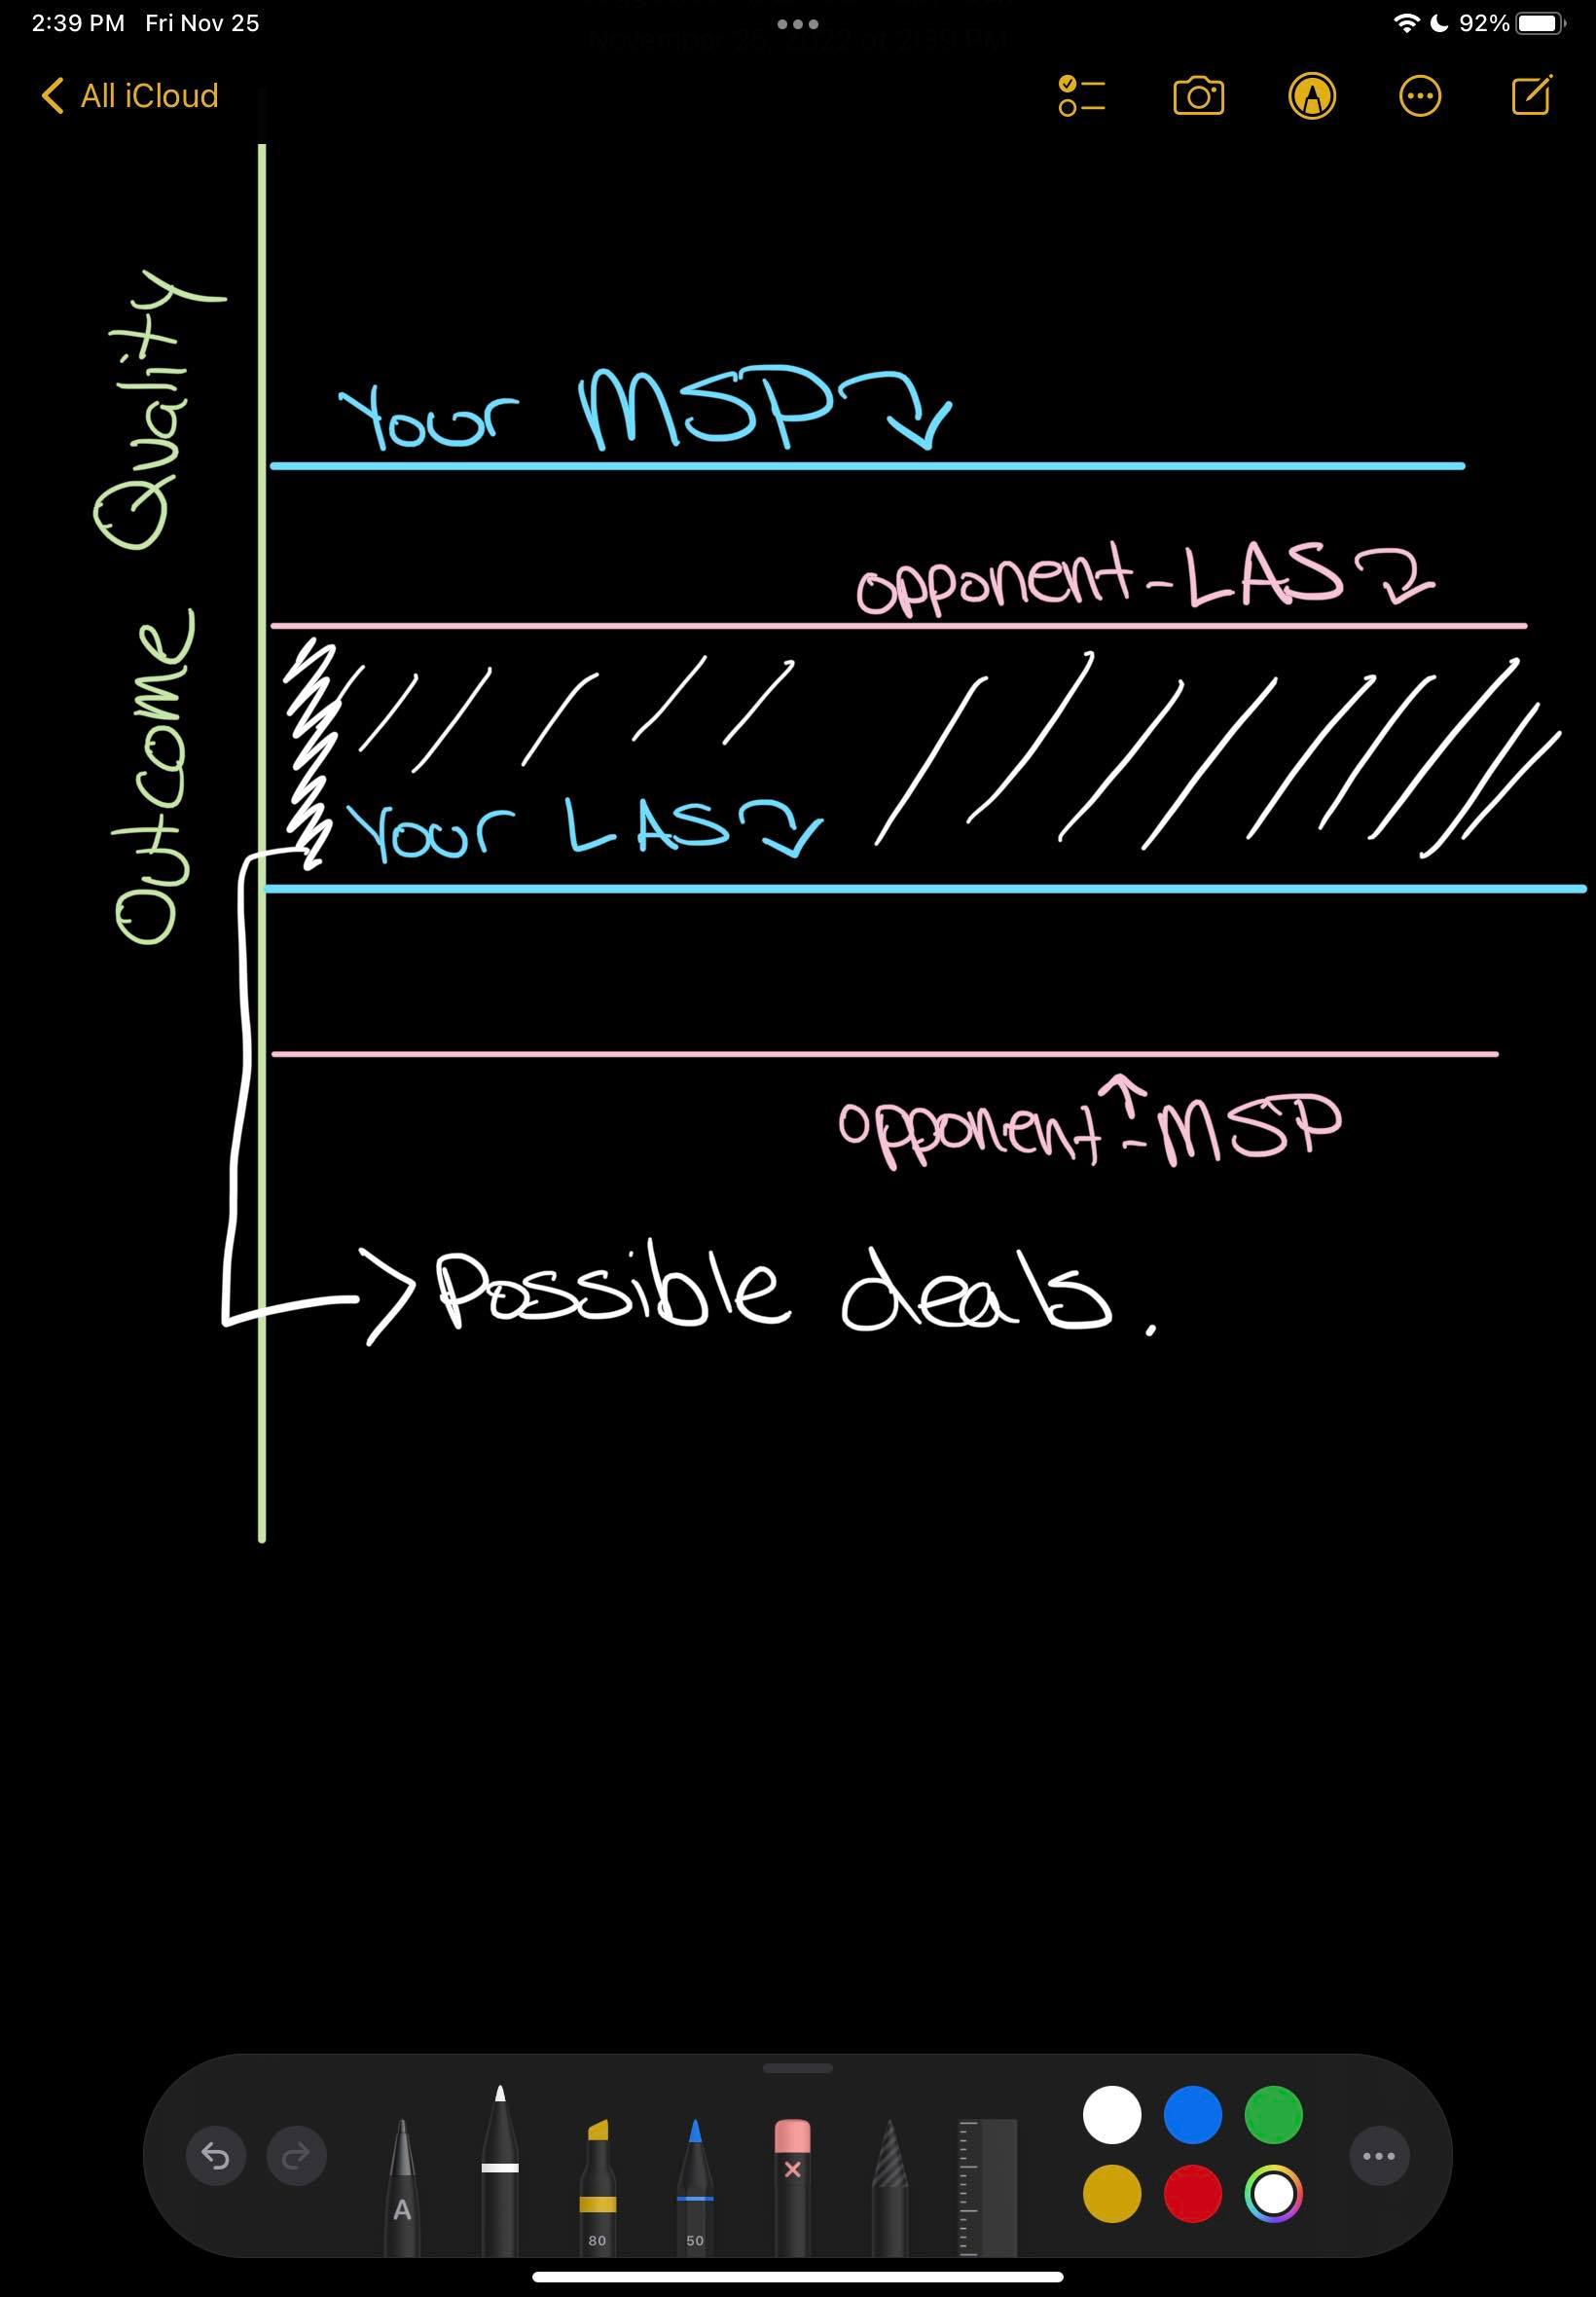 2:39 PM Fri Nov 25
92%
All iCloud
Outcome Quality
Your MSP
opponent-LAS
Your LAS
opponent-MSP
Possible deals.
A
80
50